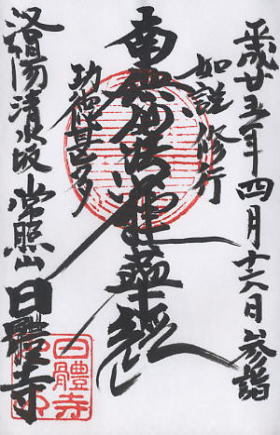 平成廿五年四月十六日参詣
如説修行
南無妙法蓮華経
功徳甚多
洛陽清水坂常照山日體寺
日體寺